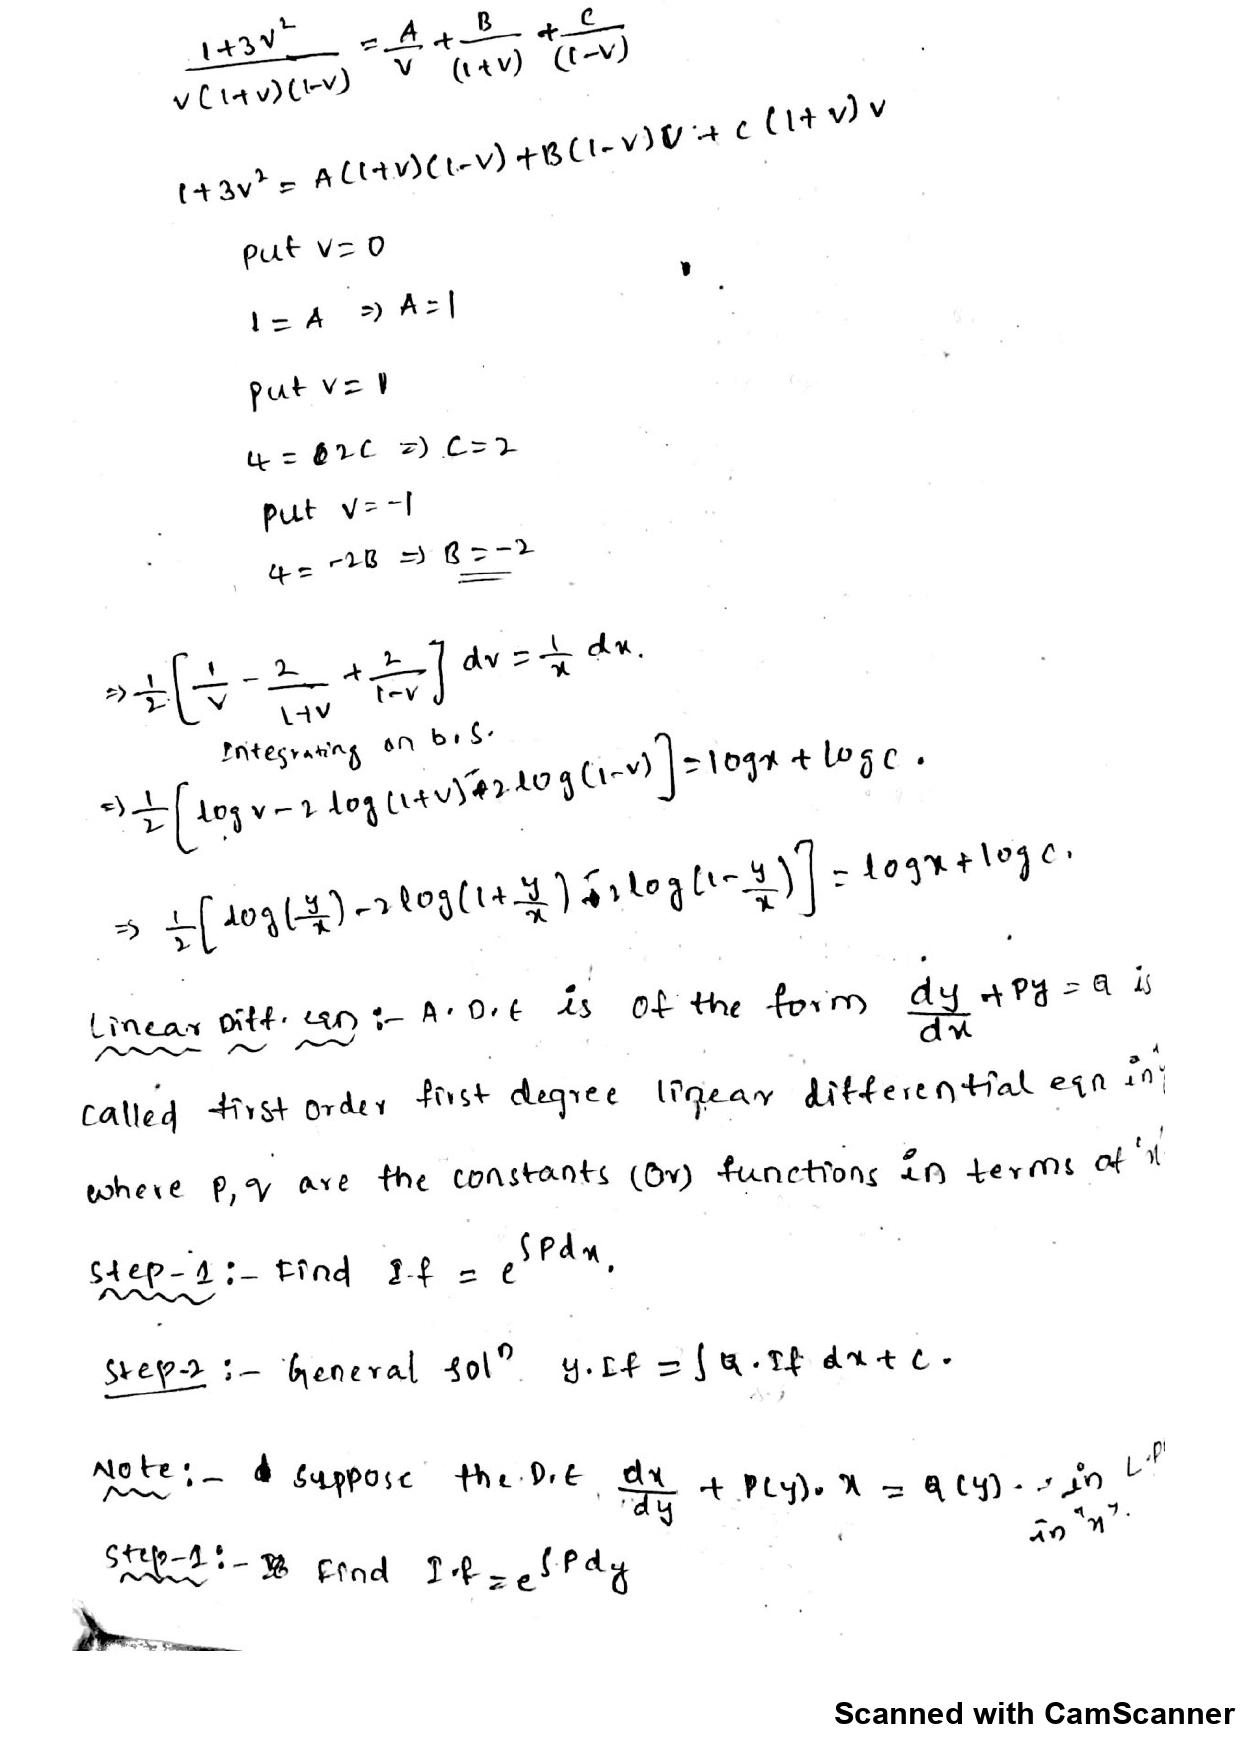 (1+3v²)/(v(1+v)(1-v)) = A/v + B/(1+v) + C/(1-v)
1+3v² = A(1+v)(1-v) + B(1-v)v + C(1+v)v
put v=0
1 = A ⇒ A=1
put v=1
4 = 2C ⇒ C=2
put v=-1
4 = -2B ⇒ B=-2
⇒ 1/2 [1/v - 2/(1+v) + 2/(1-v)] dv = 1/x dx.
Integrating on b.s.
⇒ 1/2 [log v - 2 log(1+v) - 2 log(1-v)] = log x + log c.
⇒ 1/2 [log(y/x) - 2 log(1+y/x) - 2 log(1-y/x)] = log x + log c.
Linear Diff. eqn :- A. D.E is of the form dy/dx + Py = Q is
called first order first degree linear differential eqn in
where P, Q are the constants (or) functions in terms of 'x'
Step-1 :- Find I.f = e^∫Pdx.
Step-2 :- General solⁿ y.If = ∫Q.If dx + c.
Note :- Suppose the D.E dx/dy + P(y).x = Q(y) .. in
in "x".
Step-1 :- Find I.f = e^∫Pdy
Scanned with CamScanner